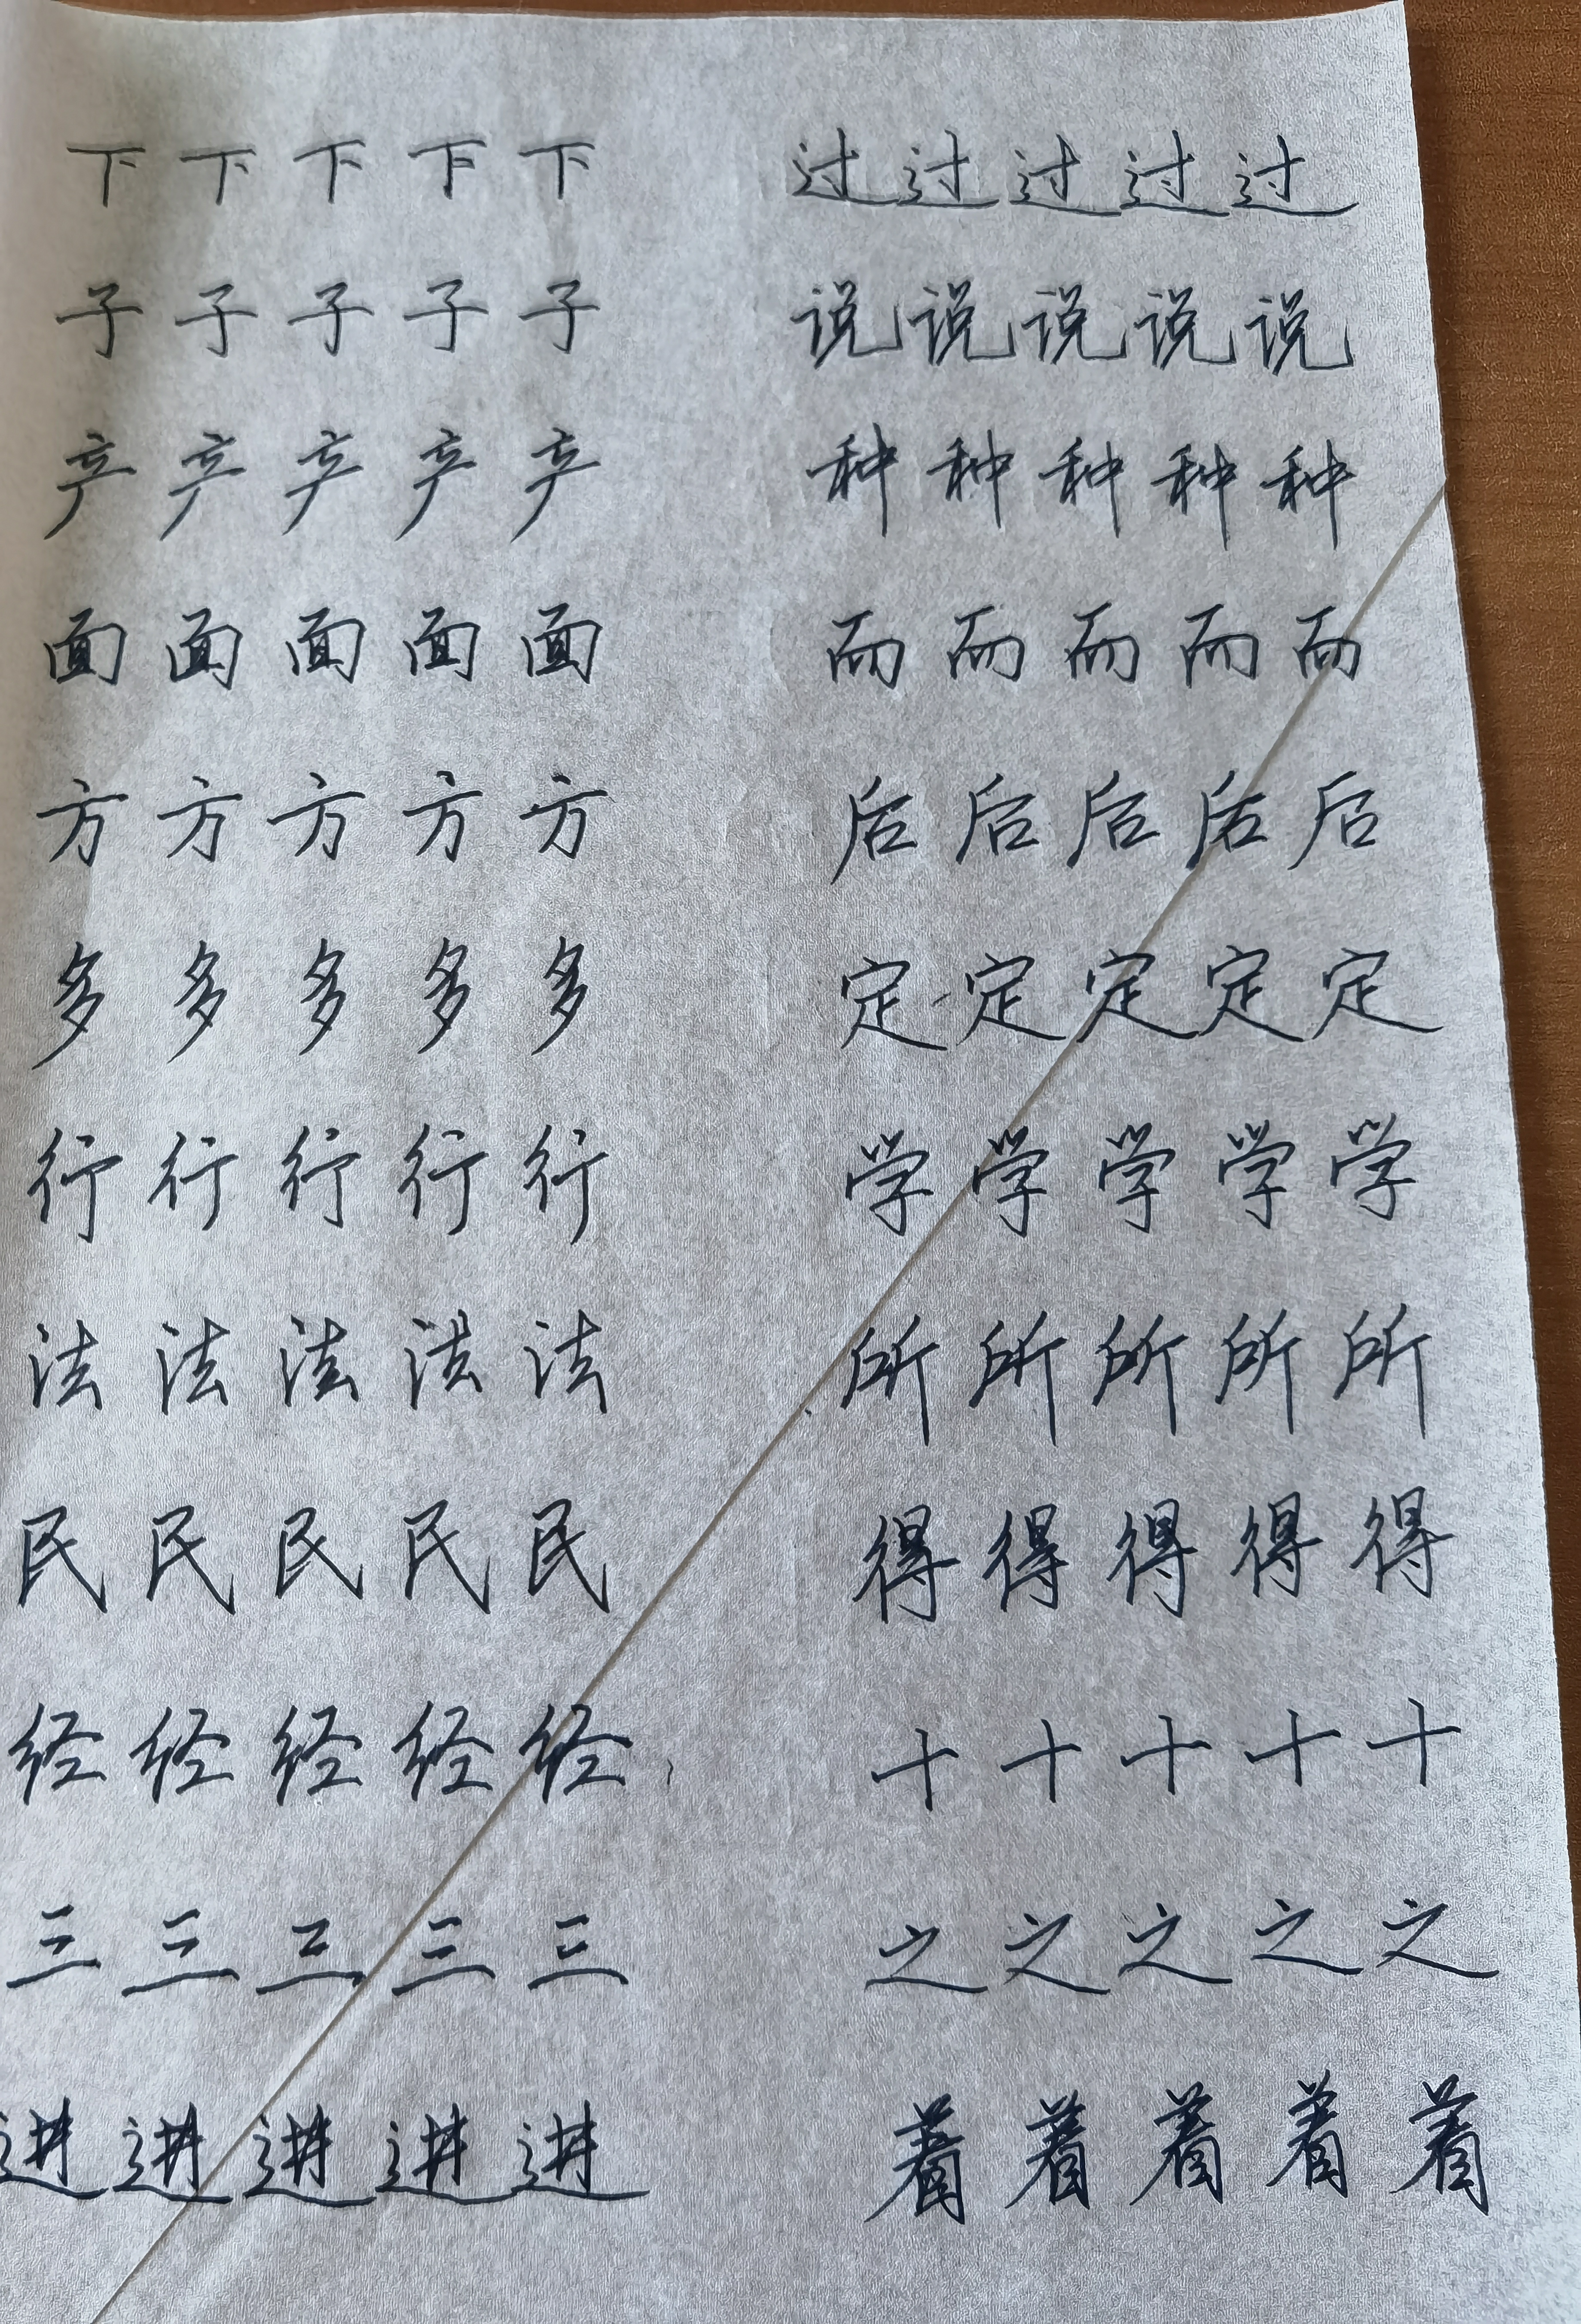 下下下下下 过过过过过
子子子子子 说说说说说
产产产产产 种种种种种
面面面面面 而而而而而
方方方方方 后后后后后
多多多多多 定定定定定
行行行行行 学学学学学
法法法法法 所所所所所
民民民民民 得得得得得
经经经经经 十十十十十
三三三三三 之之之之之
进进进进进 着着着着着